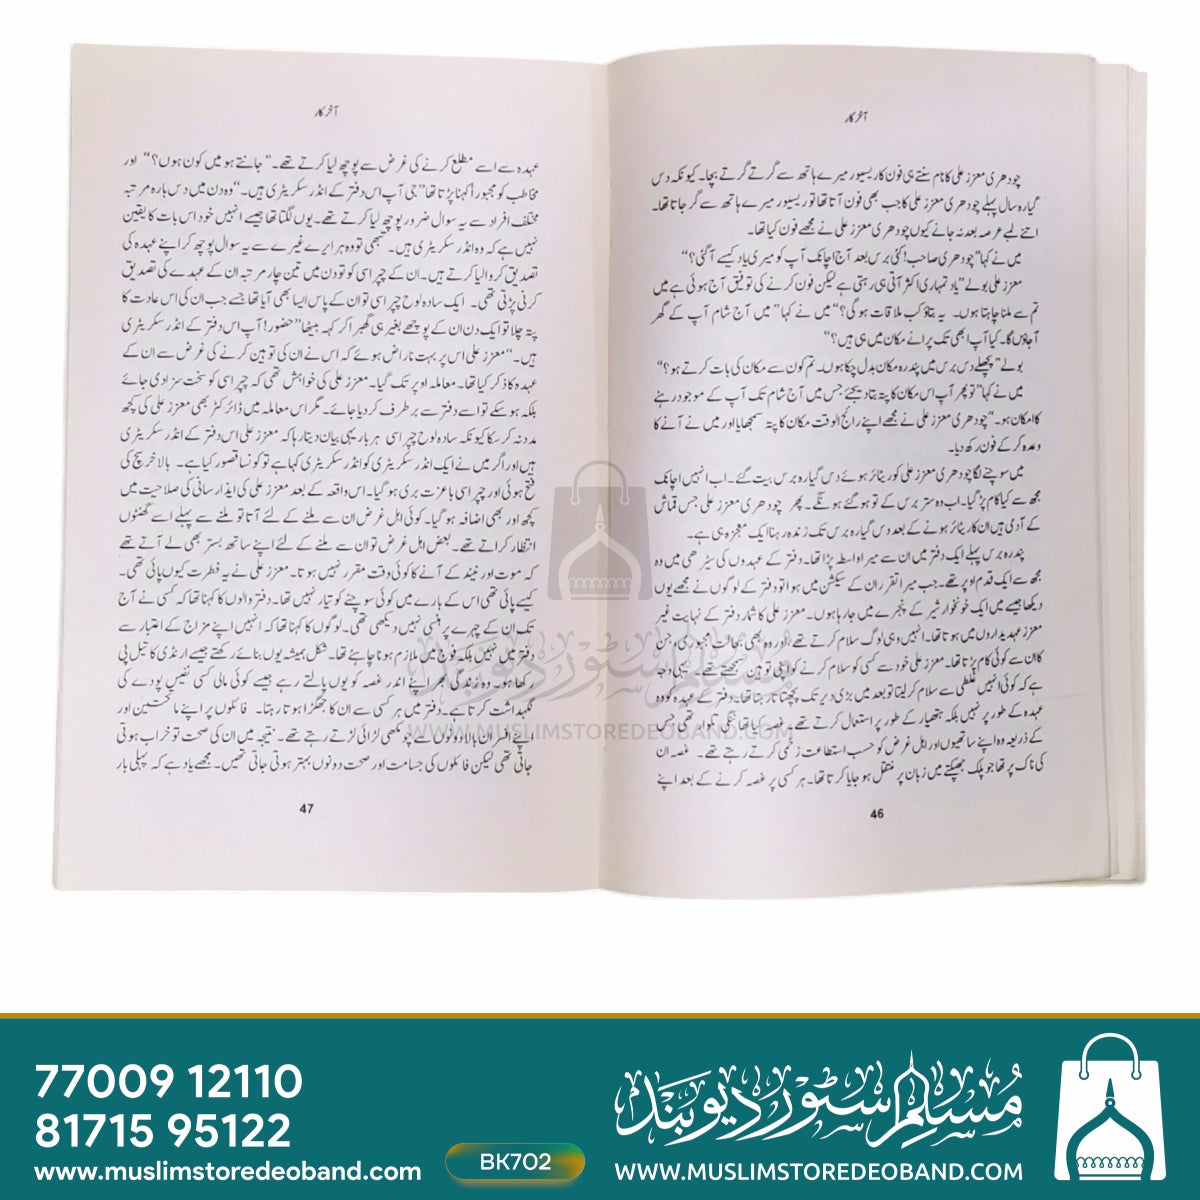 آخر کار
چودھری معزز علی کا نام سنتے ہی فون کا ریسیور میرے ہاتھ سے گرتے گرتے بچا۔ کیونکہ دس
گیارہ سال پہلے چودھری معزز علی کا جب بھی فون آتا تھا تو ریسیور میرے ہاتھ سے گر جاتا تھا۔
اتنے لمبے عرصہ بعد نہ جانے کیوں چودھری معزز علی نے مجھے فون کیا تھا۔
میں نے کہا ”چودھری صاحب! کئی برس بعد آج اچانک آپ کو میری یاد کیسے آگئی؟“
معزز علی بولے ”یاد تمہاری اکثر آتی ہی رہتی ہے لیکن فون کرنے کی توفیق آج ہوئی ہے میں
تم سے ملنا چاہتا ہوں۔ یہ بتاؤ کب ملاقات ہوگی؟“ میں نے کہا ”میں آج شام آپ کے گھر
آجاؤں گا۔ کیا آپ ابھی تک پرانے مکان میں ہی ہیں؟“
بولے ”پچھلے دس برس میں پندرہ مکان بدل چکا ہوں۔ تم کون سے مکان کی بات کرتے ہو؟“
میں نے کہا ”تو پھر آپ اس مکان کا پتہ بتا دیجئے جس میں آج شام تک آپ کے موجود رہنے
کا امکان ہو۔“ چودھری معزز علی نے مجھے اپنے رائج الوقت مکان کا پتہ سمجھایا اور میں نے آنے کا
وعدہ کر کے فون رکھ دیا۔
میں سوچنے لگا چودھری معزز علی کو ریٹائر ہوئے دس گیارہ برس بیت گئے۔ اب انہیں اچانک
مجھ سے کیا کام پڑ گیا۔ اب وہ ستر برس کے تو ہو گئے ہونگے۔ پھر چودھری معزز علی جس قماش
کے آدمی ہیں ان کا ریٹائر ہونے کے بعد دس گیارہ برس تک زندہ رہنا ایک معجزہ ہی ہے۔
پندرہ برس پہلے ایک دفتر میں ان سے میرا واسطہ پڑا تھا۔ دفتر کے عہدوں کی سیڑھی میں وہ
مجھ سے ایک قدم اوپر تھے۔ جب میرا تقرر ان کے سیکشن میں ہوا تو دفتر کے لوگوں نے مجھے یوں
دیکھا جیسے میں ایک خونخوار شیر کے پنجرے میں جا رہا ہوں۔ معزز علی کا شمار دفتر کے نہایت غیر
معزز عہدیداروں میں ہوتا تھا۔ انہیں وہی لوگ سلام کرتے تھے، اور وہ بھی بحالت مجبوری، جن
کا ان سے کوئی کام پڑتا تھا۔ معزز علی خود سے کسی کو سلام کرنے کو اپنی توہین سمجھتے تھے۔ یہی وجہ
ہے کہ کوئی انہیں غلطی سے سلام کر لیتا تو بعد میں بڑی دیر تک پچھتاتا رہتا تھا۔ دفتر کے عہدہ کو وہ
عہدہ کے طور پر نہیں بلکہ ہتھیار کے طور پر استعمال کرتے تھے۔ غصہ کیا تھا ننگی تلوار تھی جس
کے ذریعہ وہ اپنے ساتھیوں اور اہل غرض کو حسب استطاعت زخمی کرتے رہتے تھے۔ غصہ ان
کی ناک پر تھا جو پلک جھپکتے میں زبان پر منتقل ہو جایا کرتا تھا۔ ہر کسی پر غصہ کرنے کے بعد اپنے
46
آخر کار
عہدہ سے اسے مطلع کرنے کی غرض سے پوچھ لیا کرتے تھے۔ ”جانتے ہو میں کون ہوں؟“ اور
مخاطب کو مجبوراً کہنا پڑتا تھا ”جی آپ اس دفتر کے انڈر سکریٹری ہیں۔“ وہ دن میں دس بارہ مرتبہ
مختلف افراد سے یہ سوال ضرور پوچھ لیا کرتے تھے۔ یوں لگتا تھا جیسے انہیں خود اس بات کا یقین
نہیں ہے کہ وہ انڈر سکریٹری ہیں۔ تبھی تو وہ ہر ایرے غیرے سے یہ سوال پوچھ کر اپنے عہدہ کی
تصدیق کروا لیا کرتے ہیں۔ ان کے چپراسی کو تو دن میں تین چار مرتبہ ان کے عہدے کی تصدیق
کرنی پڑتی تھی۔ ایک سادہ لوح چپراسی تو ان کے پاس ایسا بھی آیا تھا جسے جب ان کی اس عادت کا
پتہ چلا تو ایک دن ان کے پوچھے بغیر ہی گھبرا کر کہہ بیٹھا ”حضور! آپ اس دفتر کے انڈر سکریٹری
ہیں۔“ معزز علی اس پر بہت ناراض ہوئے کہ اس نے ان کی توہین کرنے کی غرض سے ان کے
عہدہ کا ذکر کیا تھا۔ معاملہ اوپر تک گیا۔ معزز علی کی خواہش تھی کہ چپراسی کو سخت سزا دی جائے
بلکہ ہو سکے تو اسے دفتر سے برطرف کر دیا جائے۔ مگر اس معاملہ میں ڈائرکٹر بھی معزز علی کی کچھ
مدد نہ کر سکا کیونکہ سادہ لوح چپراسی ہر بار یہی بیان دیتا رہا کہ معزز علی اس دفتر کے انڈر سکریٹری
ہیں اور اگر میں نے ایک انڈر سکریٹری کو انڈر سکریٹری کہا ہے تو کونسا قصور کیا ہے۔ بالآخر سچ کی
فتح ہوئی اور چپراسی باعزت بری ہو گیا۔ اس واقعہ کے بعد معزز علی کی ایذا رسانی کی صلاحیت میں
کچھ اور بھی اضافہ ہو گیا۔ کوئی اہل غرض ان سے ملنے کے لئے آتا تو ملنے سے پہلے اسے گھنٹوں
انتظار کراتے تھے۔ بعض اہل غرض تو ان سے ملنے کے لئے اپنے ساتھ بستر بھی لے آتے تھے
کہ موت اور نیند کے آنے کا کوئی وقت مقرر نہیں ہوتا۔ معزز علی نے یہ فطرت کیوں پائی تھی۔
کیسے پائی تھی اس کے بارے میں کوئی سوچنے کو تیار نہیں تھا۔ دفتر والوں کا کہنا تھا کہ کسی نے آج
تک ان کے چہرے پر ہنسی نہیں دیکھی تھی۔ لوگوں کا کہنا تھا کہ انہیں اپنے مزاج کے اعتبار سے
دفتر میں نہیں بلکہ فوج میں ملازم ہونا چاہئے تھا۔ شکل ہمیشہ یوں بنائے رکھتے جیسے ارنڈی کا تیل پی
رکھا ہو۔ وہ زندگی بھر اپنے اندر غصہ کو یوں پالتے رہے جیسے کوئی مالی کسی نفیس پودے کی
نگہداشت کرتا ہے۔ دفتر میں ہر کسی سے ان کا جھگڑا ہوتا رہتا۔ فائلوں پر اپنے ماتحتین اور
اپنے افسران بالا دونوں سے چومکھی لڑائی لڑتے رہتے تھے۔ نتیجہ میں ان کی صحت تو خراب ہوتی
جاتی تھی لیکن فائلوں کی جسامت اور صحت دونوں بہتر ہوتی جاتی تھیں۔ مجھے یاد ہے کہ پہلی بار
47
مسلم سٹور دیوبند
WWW.MUSLIMSTOREDEOBAND.COM
77009 12110
81715 95122
www.muslimstoredeoband.com
BK702
مسلم سٹور دیوبند
WWW.MUSLIMSTOREDEOBAND.COM